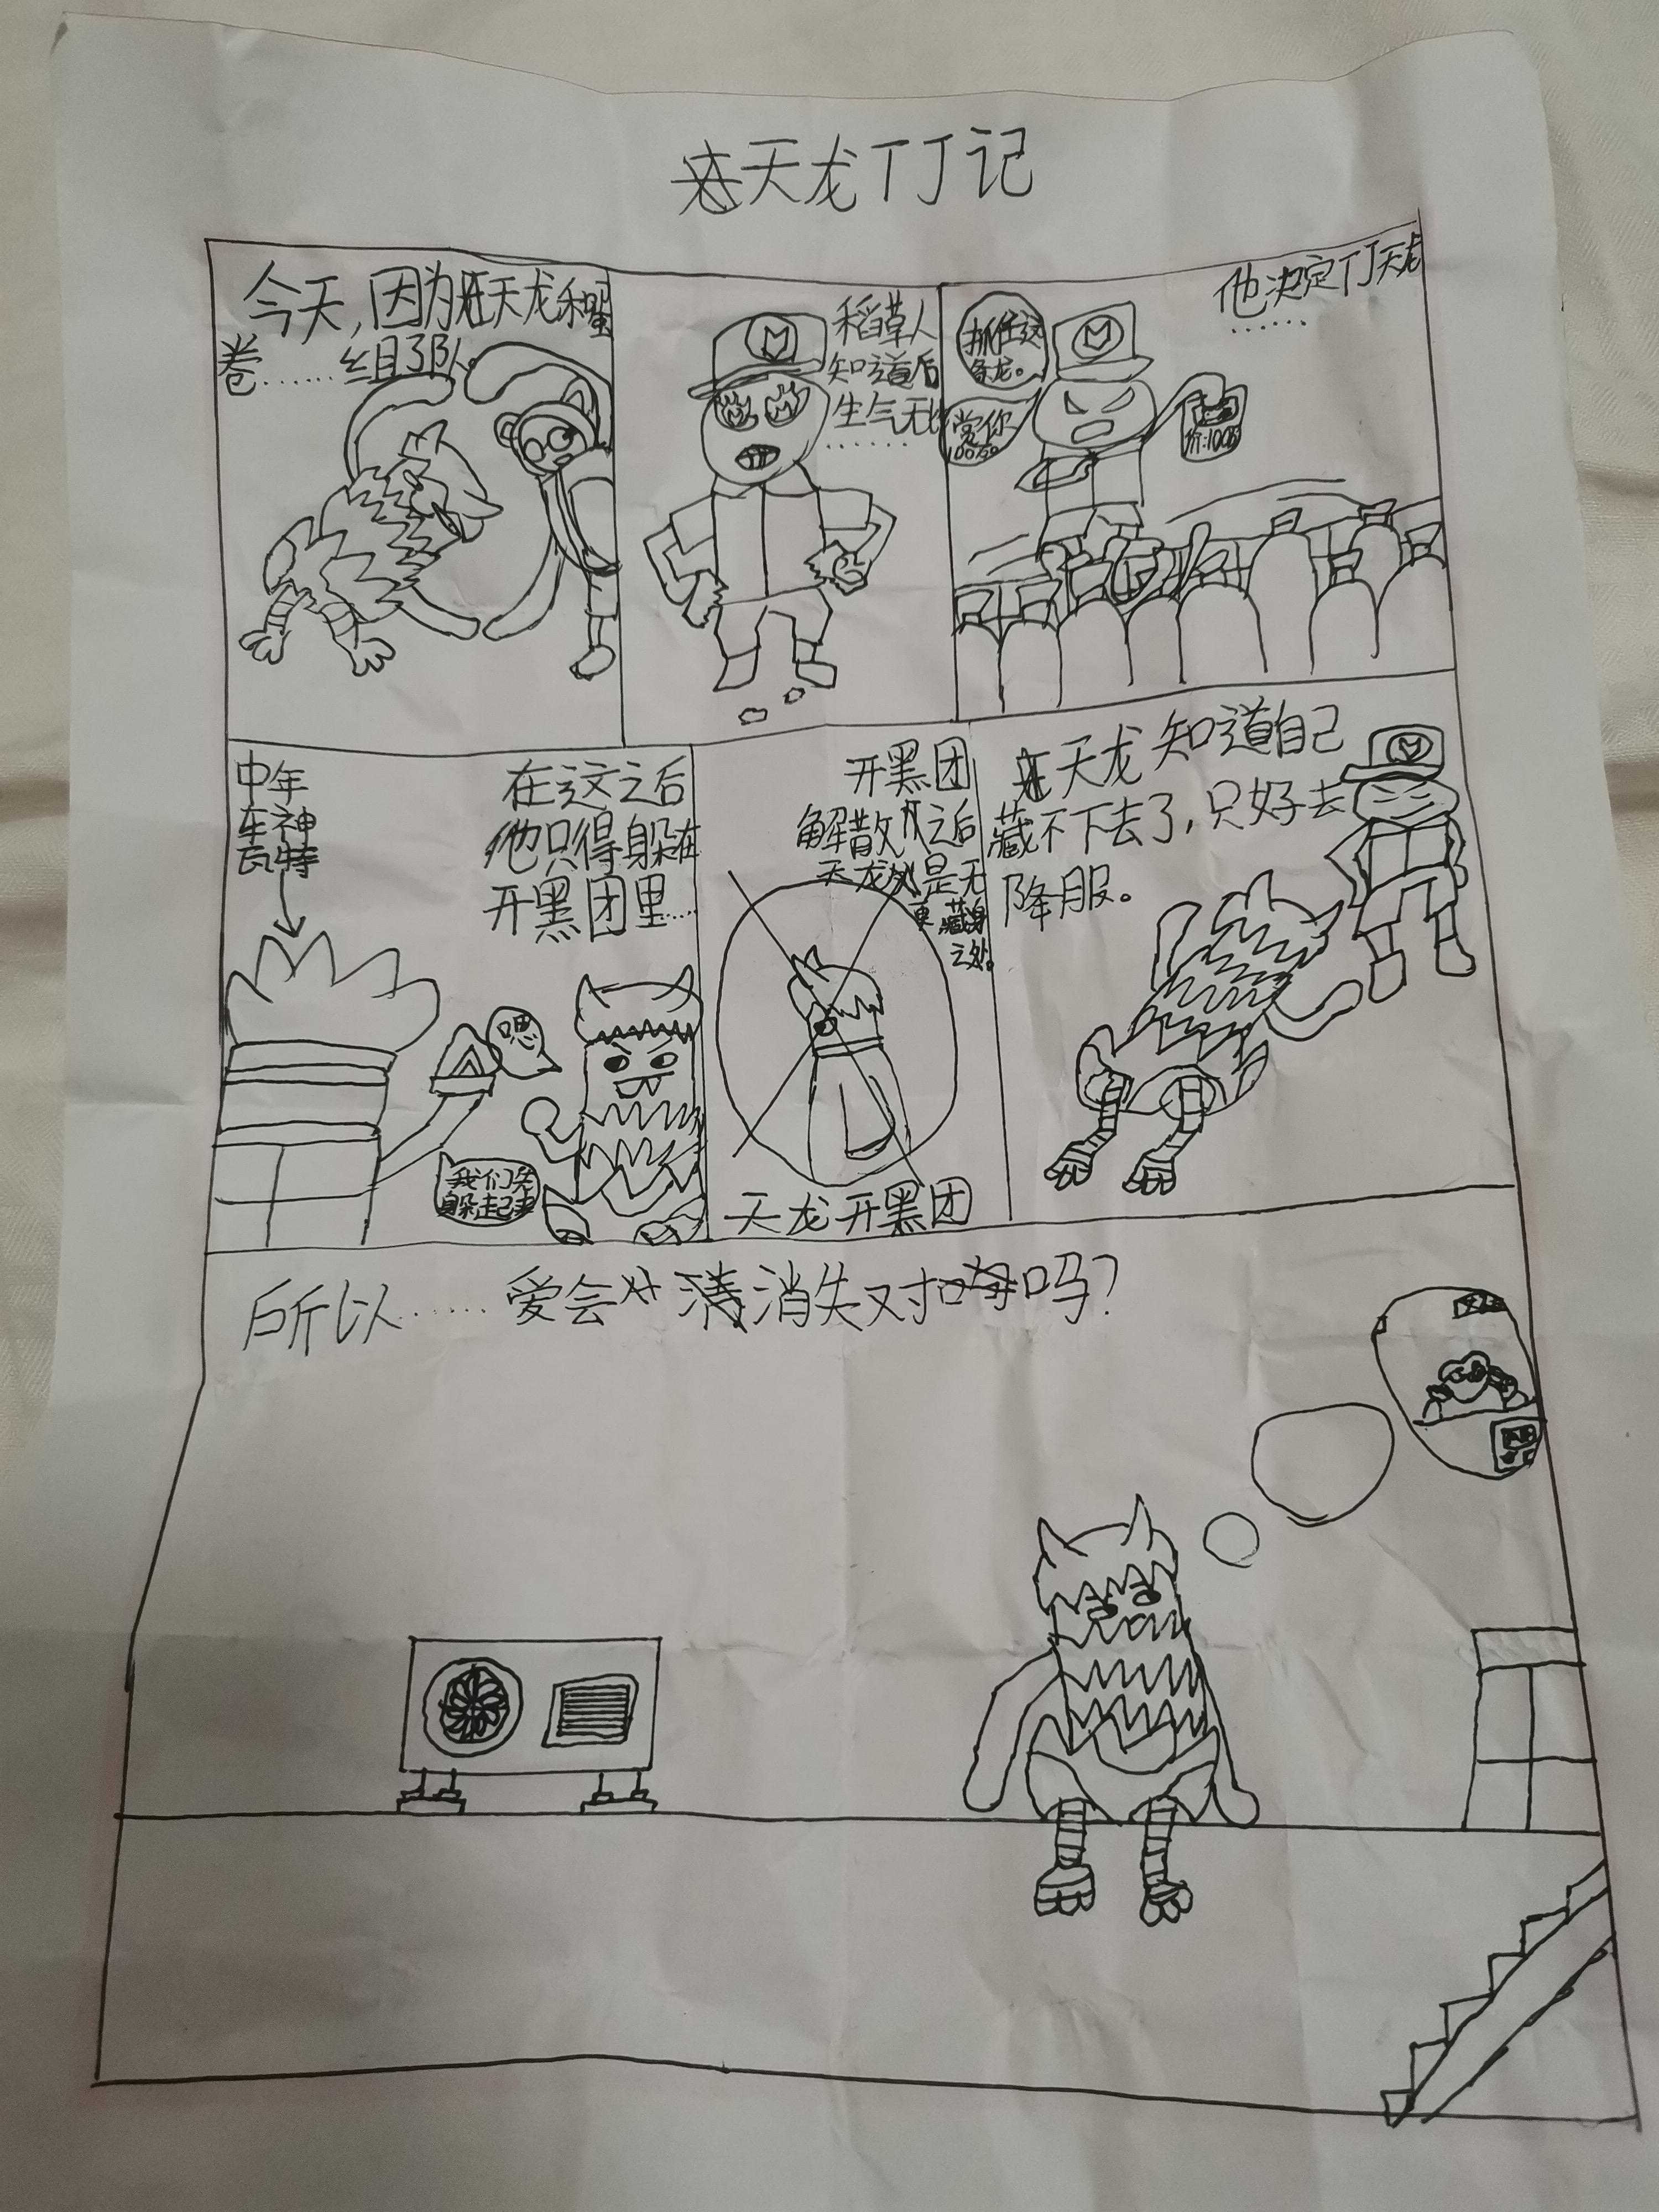 天龙TJ记
今天,因为天龙和蛋
卷......组了队
稻草人
知道后
生气无比
.......
他决定TJ天龙
......
抓住这
条龙。
赏你
100万。
价:100万
中年
车神
瓦特
在这之后
他只得躲在
开黑团里.....
嗯
我们先
躲起来
开黑团
解散之后
天龙是无
藏身
之处。
天龙开黑团
天龙知道自己
藏不下去了,只好去
降服。
所以......爱会消失对吗?